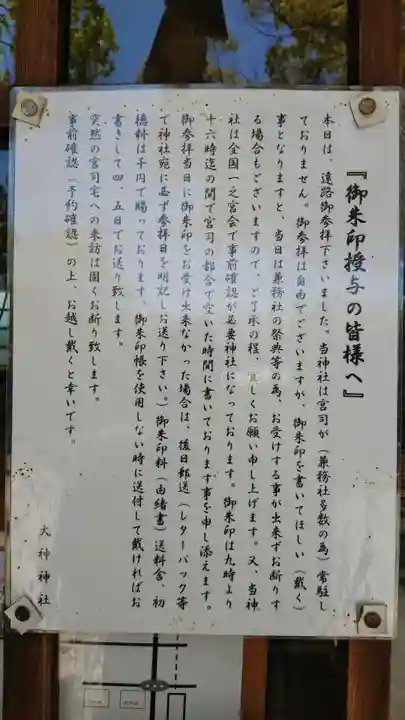 『御朱印授与の皆様へ』
本日は、遠路御参拝下さいました。当神社は宮司が（兼務社多数の為）常駐し
ておりません。御参拝は自由でございますが、御朱印を書いてほしい（戴く）
事となりますと、当日は兼務社の祭典等の為、お受けする事が出来ずお断りす
る場合もございますので、ご了承の程、宜しくお願い申し上げます。又、当神
社は全国一之宮会で事前確認が必要神社になっております。御朱印は九時より
十六時迄の間で宮司の都合で空いた時間に書いております事を申し添えます。
御参拝当日に御朱印をお受け出来なかった場合は、後日郵送（レターパック等
で神社宛に必ず参拝日を明記しお送り下さい。）御朱印料（由緒書）送料含、初
穂料は千円で賜っております。御朱印帳を使用しない時に送付して戴ければお
書きして四、五日でお送り致します。
突然の宮司宅への来訪は固くお断り致します。
事前確認（予約確認）の上、お越し戴くと幸いです。
大神神社